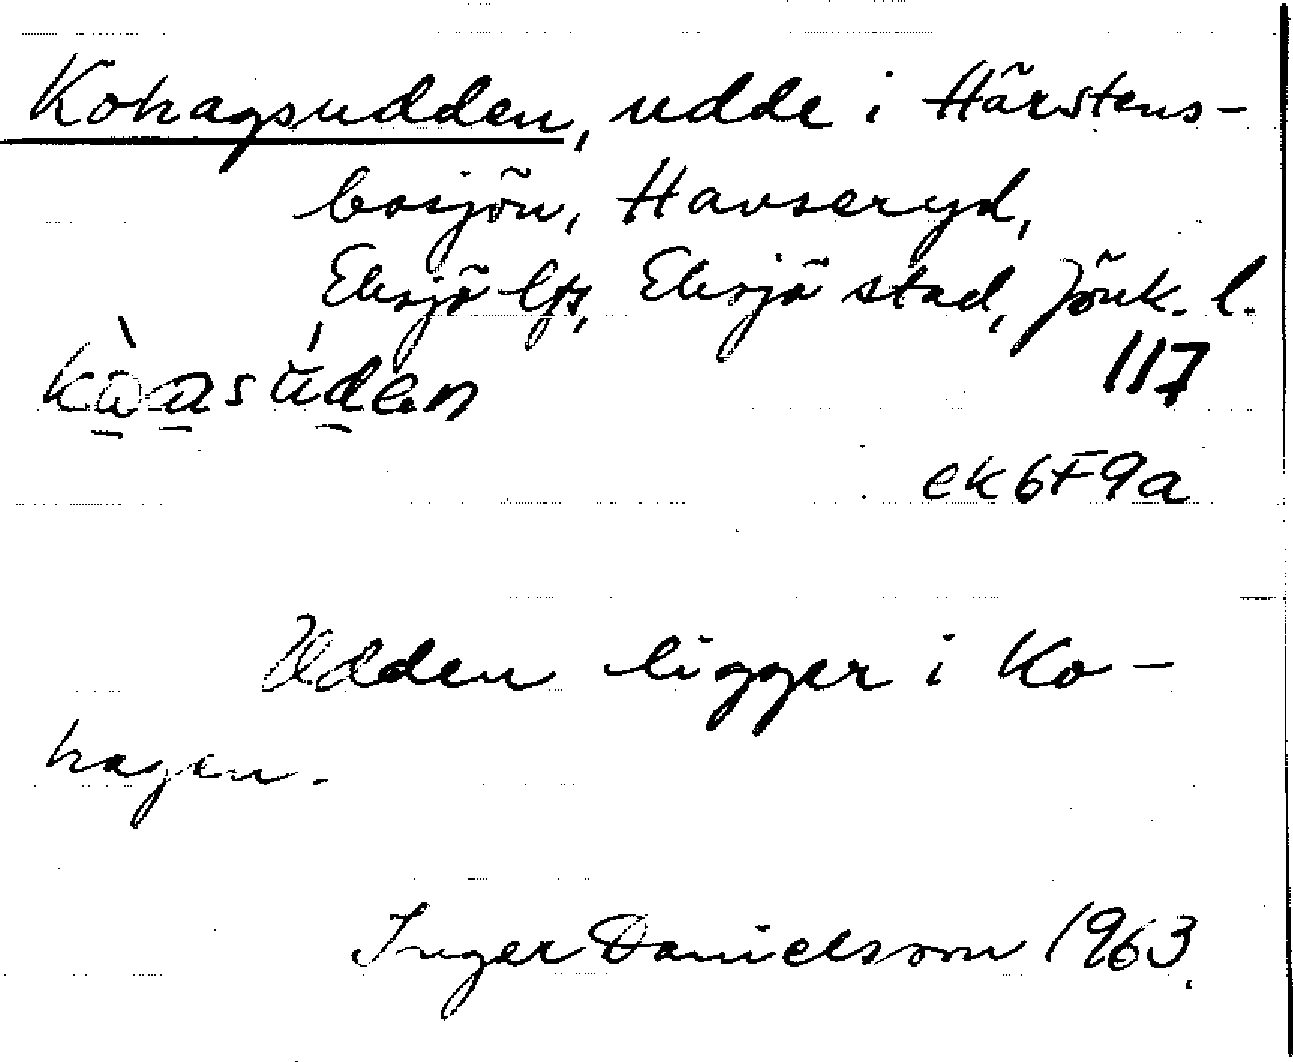 Kohagsudden, udde i Härstens-
bosjön, Havseryd,
Eksjö lfs, Eksjö stad, Jönk. l.
117
ek6F9a
Udden ligger i Ko-
hagen.
Inger Danielsson 1963.